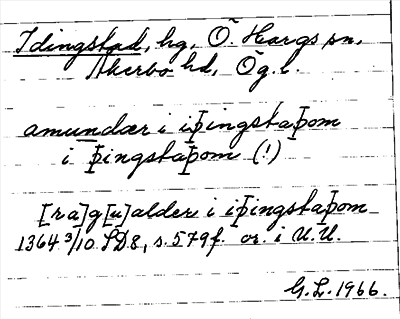 Idingstad, hg, Ö. Hargs sn,
Åkerbo hd, Ög. l.
amundær i iþingstaþom
i þingstaþom (!)
[ra]g[u]alder i iþingstaþom
1364 3/10. SD8, s. 579 f. or. i U.U.
G. L. 1966.